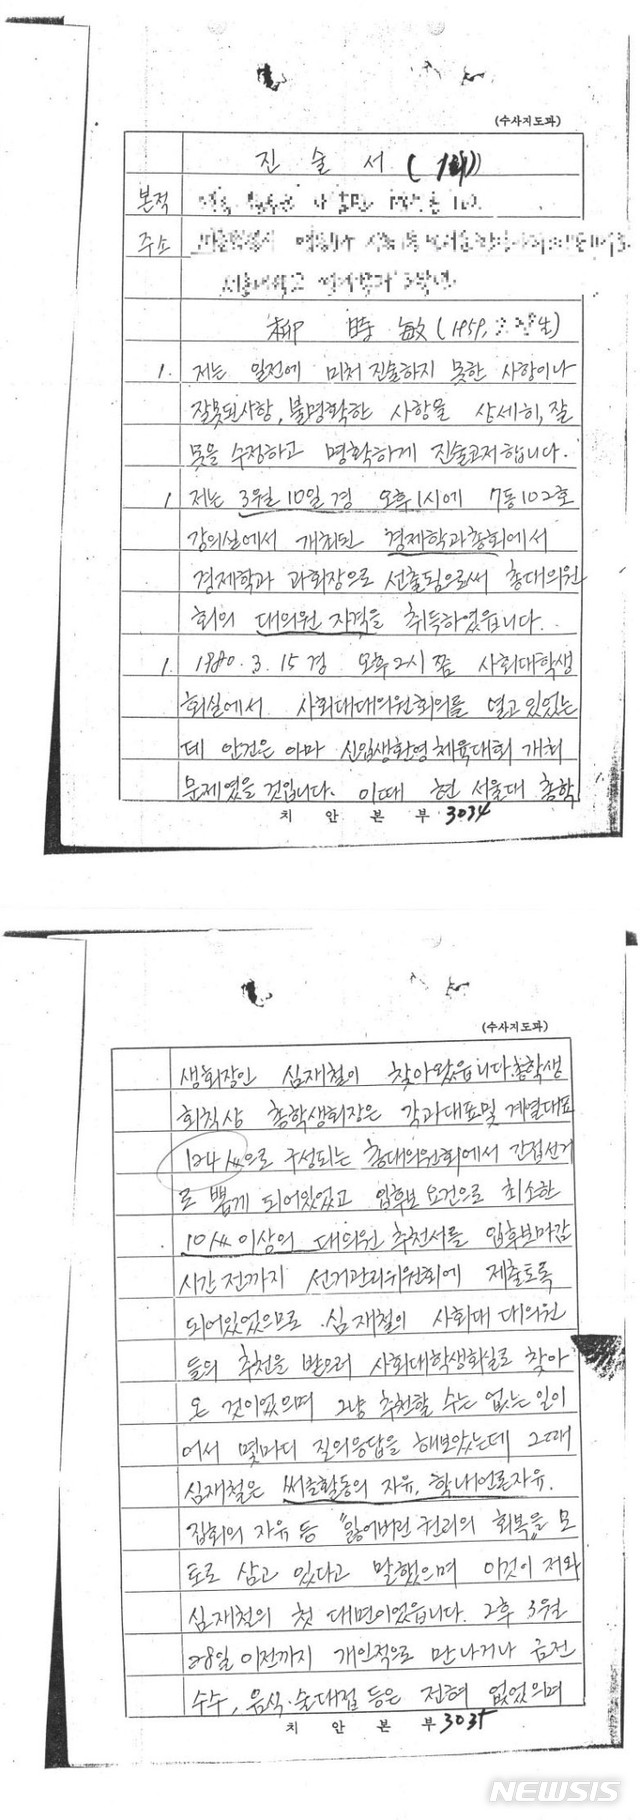 (수사지도과)
진 술 서
본적
주소
柳 時 敏 (1959.
1. 저는 일전에 미처 진술하지 못한 사항이나
잘못된사항, 불명확한 사항을 상세히, 잘
못을 수정하고 명확하게 진술코저합니다.
1. 저는 3월 10일 경 오후1시에 7동102호
강의실에서 개최된 경제학과총회에서
경제학과 과회장으로 선출됨으로써 총대의원
회의 대의원 자격을 취득하였읍니다.
1. 1980. 3. 15 경 오후2시 쯤 사회대학생
회실에서 사회대대의원회의를 열고 있었는
데 안건은 아마 신입생환영체육대회 개최
문제였을 것입니다. 이때 현 서울대 총학
치 안 본 부 3034
(수사지도과)
생회장인 심재철이 찾아왔읍니다. 총학생
회칙상 총학생회장은 각과대표및 계열대표
124人으로 구성되는 총대의원회에서 간접선거
로 뽑게 되어있었고 입후보 요건으로 최소한
10人 이상의 대의원 추천서를 입후보마감
시간 전까지 선거관리위원회에 제출토록
되어있었으므로 심재철이 사회대 대의원
들의 추천을 받으러 사회대학생회실로 찾아
온 것이었으며 그냥 추천할 수는 없는 일이
어서 몇마디 질의응답을 해보았는데 그때
심재철은 써클활동의 자유, 학내언론자유,
집회의 자유 등 "잃어버린 권리의 회복"을 모
토로 삼고 있다고 말했으며 이것이 저와
심재철의 첫 대면이었읍니다. 그후 3월
28일 이전까지 개인적으로 만나거나 금전
수수, 음식·술대접 등은 전혀 없었으며
치 안 본 부 3035
NEWSIS